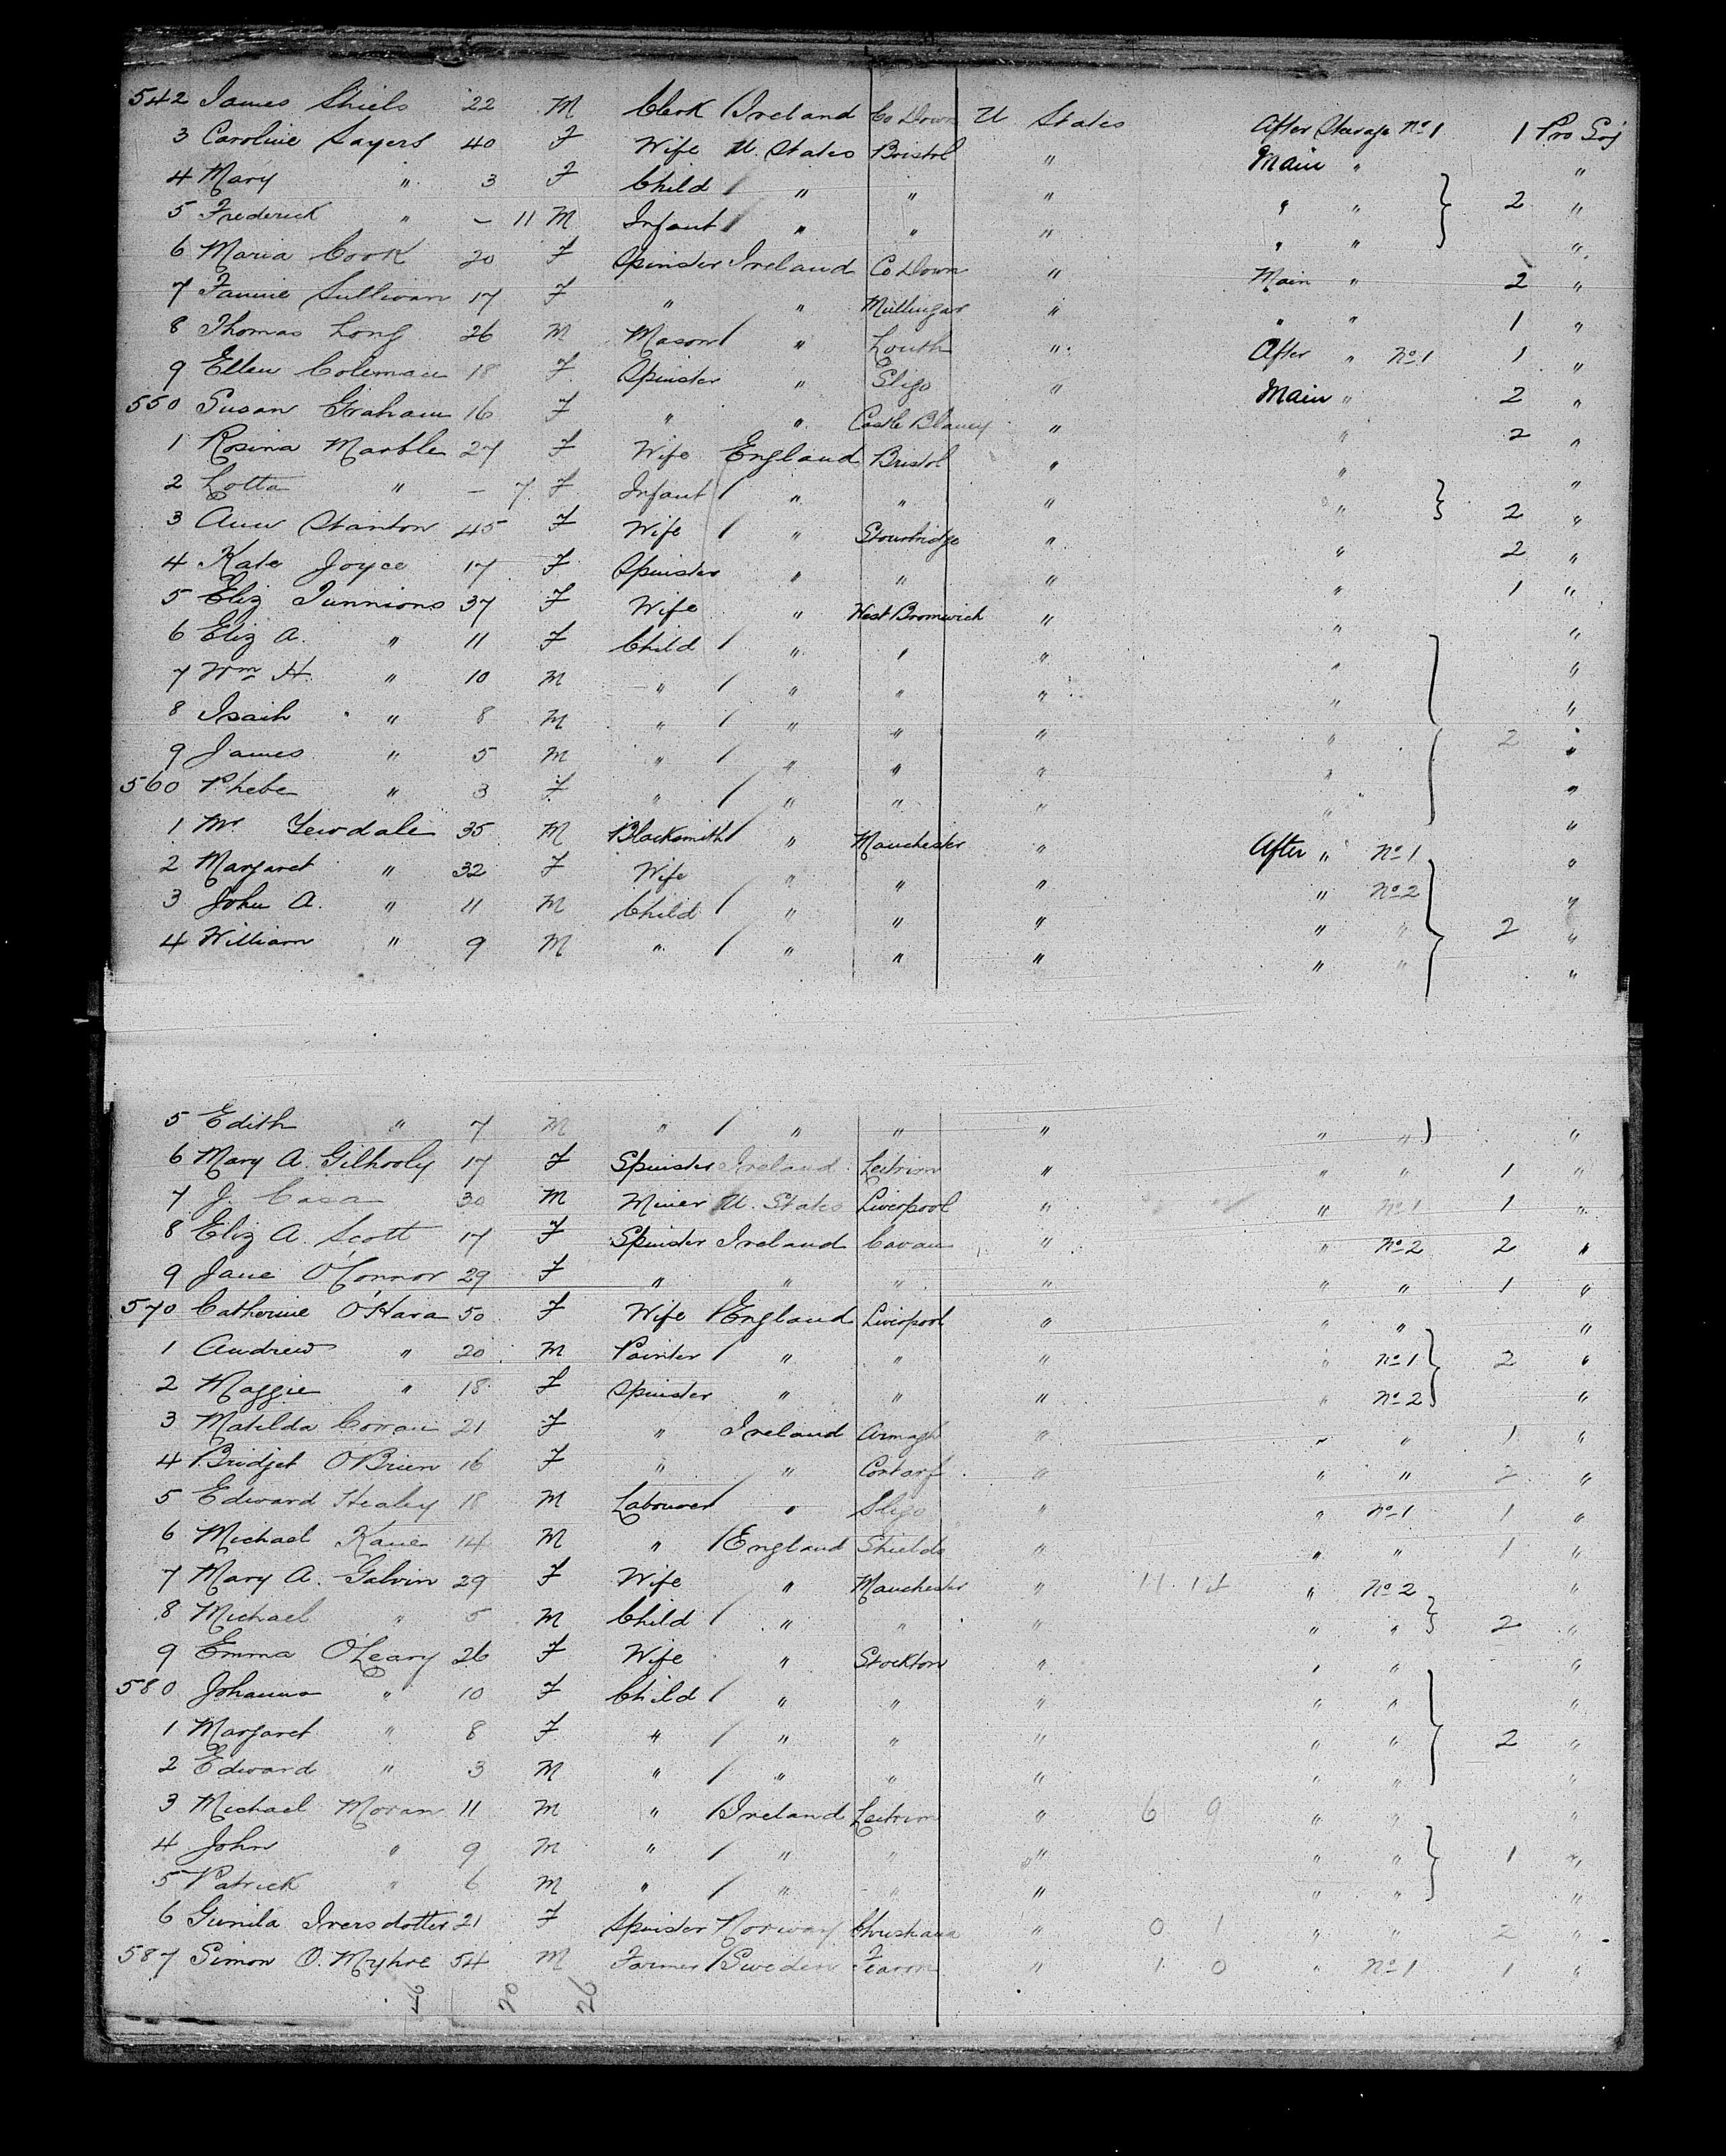 542 James Shiels 22 M Clerk / Ireland Co Down U States After Steerage No 1 1 Pro Soj
3 Caroline Sayers 40 F Wife U. States Bristol " Main " "
4 Mary " 3 F Child / " " " " " 2 "
5 Frederick " - 11 M Infant / " " " " " "
6 Maria Cook 20 F Spinster Ireland Co Down " Main " 2 "
7 Fannie Sullivan 17 F " " Mullingar " " " 1 "
8 Thomas Long 26 M Mason / " Louth " After " No 1 1 "
9 Ellen Coleman 18 F Spinster " Sligo " Main " 2 "
550 Susan Graham 16 F " " Castle Blaney " " 2 "
1 Rosina Marble 27 F Wife England Bristol " " "
2 Lotta " - 7 F Infant / " " " " 2 "
3 Ann Stanton 45 F Wife / " Stourbridge " " 2 "
4 Kate Joyce 17 F Spinster " " " " 1 "
5 Eliz Tunnions 37 F Wife " West Bromwich " " "
6 Eliz A. " 11 F Child / " " " " "
7 Wm H. " 10 M " / " " " " "
8 Isaih " 8 M " / " " " " 2 "
9 James " 5 M " / " " " " "
560 Phebe " 3 F " / " " " " "
1 Mr Yewdale 35 M Blacksmith / " Manchester " After " No 1 "
2 Margaret " 32 F Wife " " " " No 2 "
3 John A. " 11 M Child / " " " " " 2 "
4 William " 9 M " / " " " " " "
5 Edith " 7 M " / " " " " " "
6 Mary A. Gilhooly 17 F Spinster Ireland Leitrim " " " 1 "
7 J. Casa 30 M Miner U. States Liverpool " " No 1 1 "
8 Eliz A. Scott 17 F Spinster Ireland Cavan " " No 2 2 "
9 Jane O'Connor 29 F " " " " " " 1 "
570 Catherine O'Hara 50 F Wife / England Liverpool " " " "
1 Andrew " 20 M Painter / " " " " No 1 2 "
2 Maggie " 18 F Spinster " " " " No 2 "
3 Matilda Cowan 21 F " Ireland Armagh " " " 1 "
4 Bridget O'Brien 16 F " " " " " 2 "
5 Edward Healey 18 M Labourer / " Sligo " " No 1 1 "
6 Michael Kane 14 M " / England Shields " " " 1 "
7 Mary A. Galvin 29 F Wife " Manchester " 11 14 " No 2 "
8 Michael " 5 M Child / " " " " " 2 "
9 Emma O'Leary 26 F Wife " Stockton " " " "
580 Johanna " 10 F Child / " " " " " "
1 Margaret " 8 F " / " " " " " 2 "
2 Edward " 3 M " / " " " " " "
3 Michael Moran 11 M " / Ireland Leitrim " 6 9 " " "
4 John " 9 M " / " " " " " 1 "
5 Patrick " 6 M " / " " " " " "
6 Gunila Iversdotter 21 F Spinster Norway Christiana " 0 1 " " 2 "
587 Simon O. Myhre 54 M Farmer / Sweden " 1 0 " No 1 1 "
46 20 26